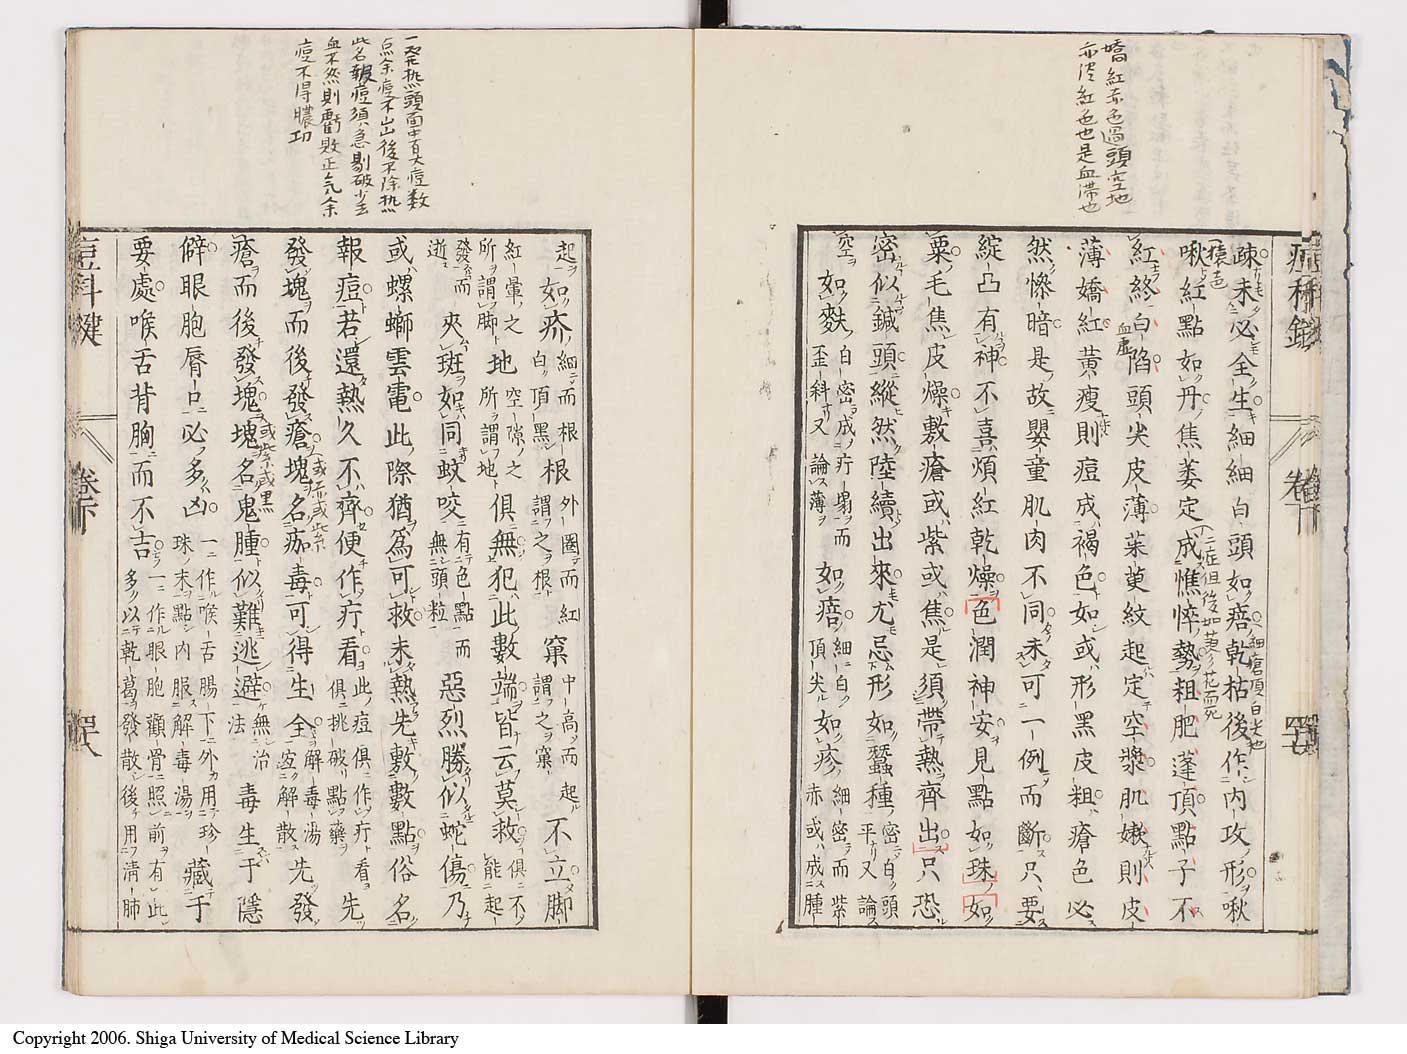 嬌紅赤色過頭空地
亦浮紅色也是血滞也
痘科鍵
卷下
四十七
疎未必全生細細白頭如㾦乾枯後作内攻形啾
啾紅點如丹焦萎定成憔悴勢粗肥蓬頂點子不
紅終白陷頭尖皮薄茱萸紋起定空漿肌嫩則皮
薄嬌紅黄瘦則痘成褐色如或形黑皮粗瘡色必
然慘暗是故嬰童肌肉不同未可一例而斷只要
綻凸有神不喜煩紅乾燥色潤神安見點如珠如
粟毛焦皮燥敷瘡或紫或焦是須帶熱齊出只恐
密似鍼頭縱然陸續出來尤忌形如蠶種密白頭平又論
空如麩白密成疔塌而歪斜又論薄如㾦細白頂尖如疹細密而紫赤或成腫
一発热頭面中有大痘数
点余痘不出後不除热
此名報痘須急剔破少去
血不然則虧敗正気余
痘不得膿功
起如疥細而根白頂黑根外圈而紅謂之根窠中高而起謂之窠不立脚
紅暈之所謂脚地空隙之所謂地俱無犯此數端皆云莫救俱不能起
發而逝夾斑如同蚊咬有色點無頭粒而惡烈勝似蛇傷乃
或螺螄雲電此際猶爲可救未熱先敷數點俗名
報痘若還熱久不齊便作疔看此痘俱作疔看俱挑破點藥先
發塊而後發瘡塊名痂毒可得生全解毒湯宜解散先發
瘡而後發塊塊名鬼腫似難逃避無治法毒生于隱
僻眼胞唇口必多凶一作喉舌腸下外用珍珠末點内服解毒湯藏于
要處喉舌背胸而不吉一作眼胞顴骨照前有此多以乾葛發散後用清肺
痘科鍵
卷下
四十八
Copyright 2006. Shiga University of Medical Science Library